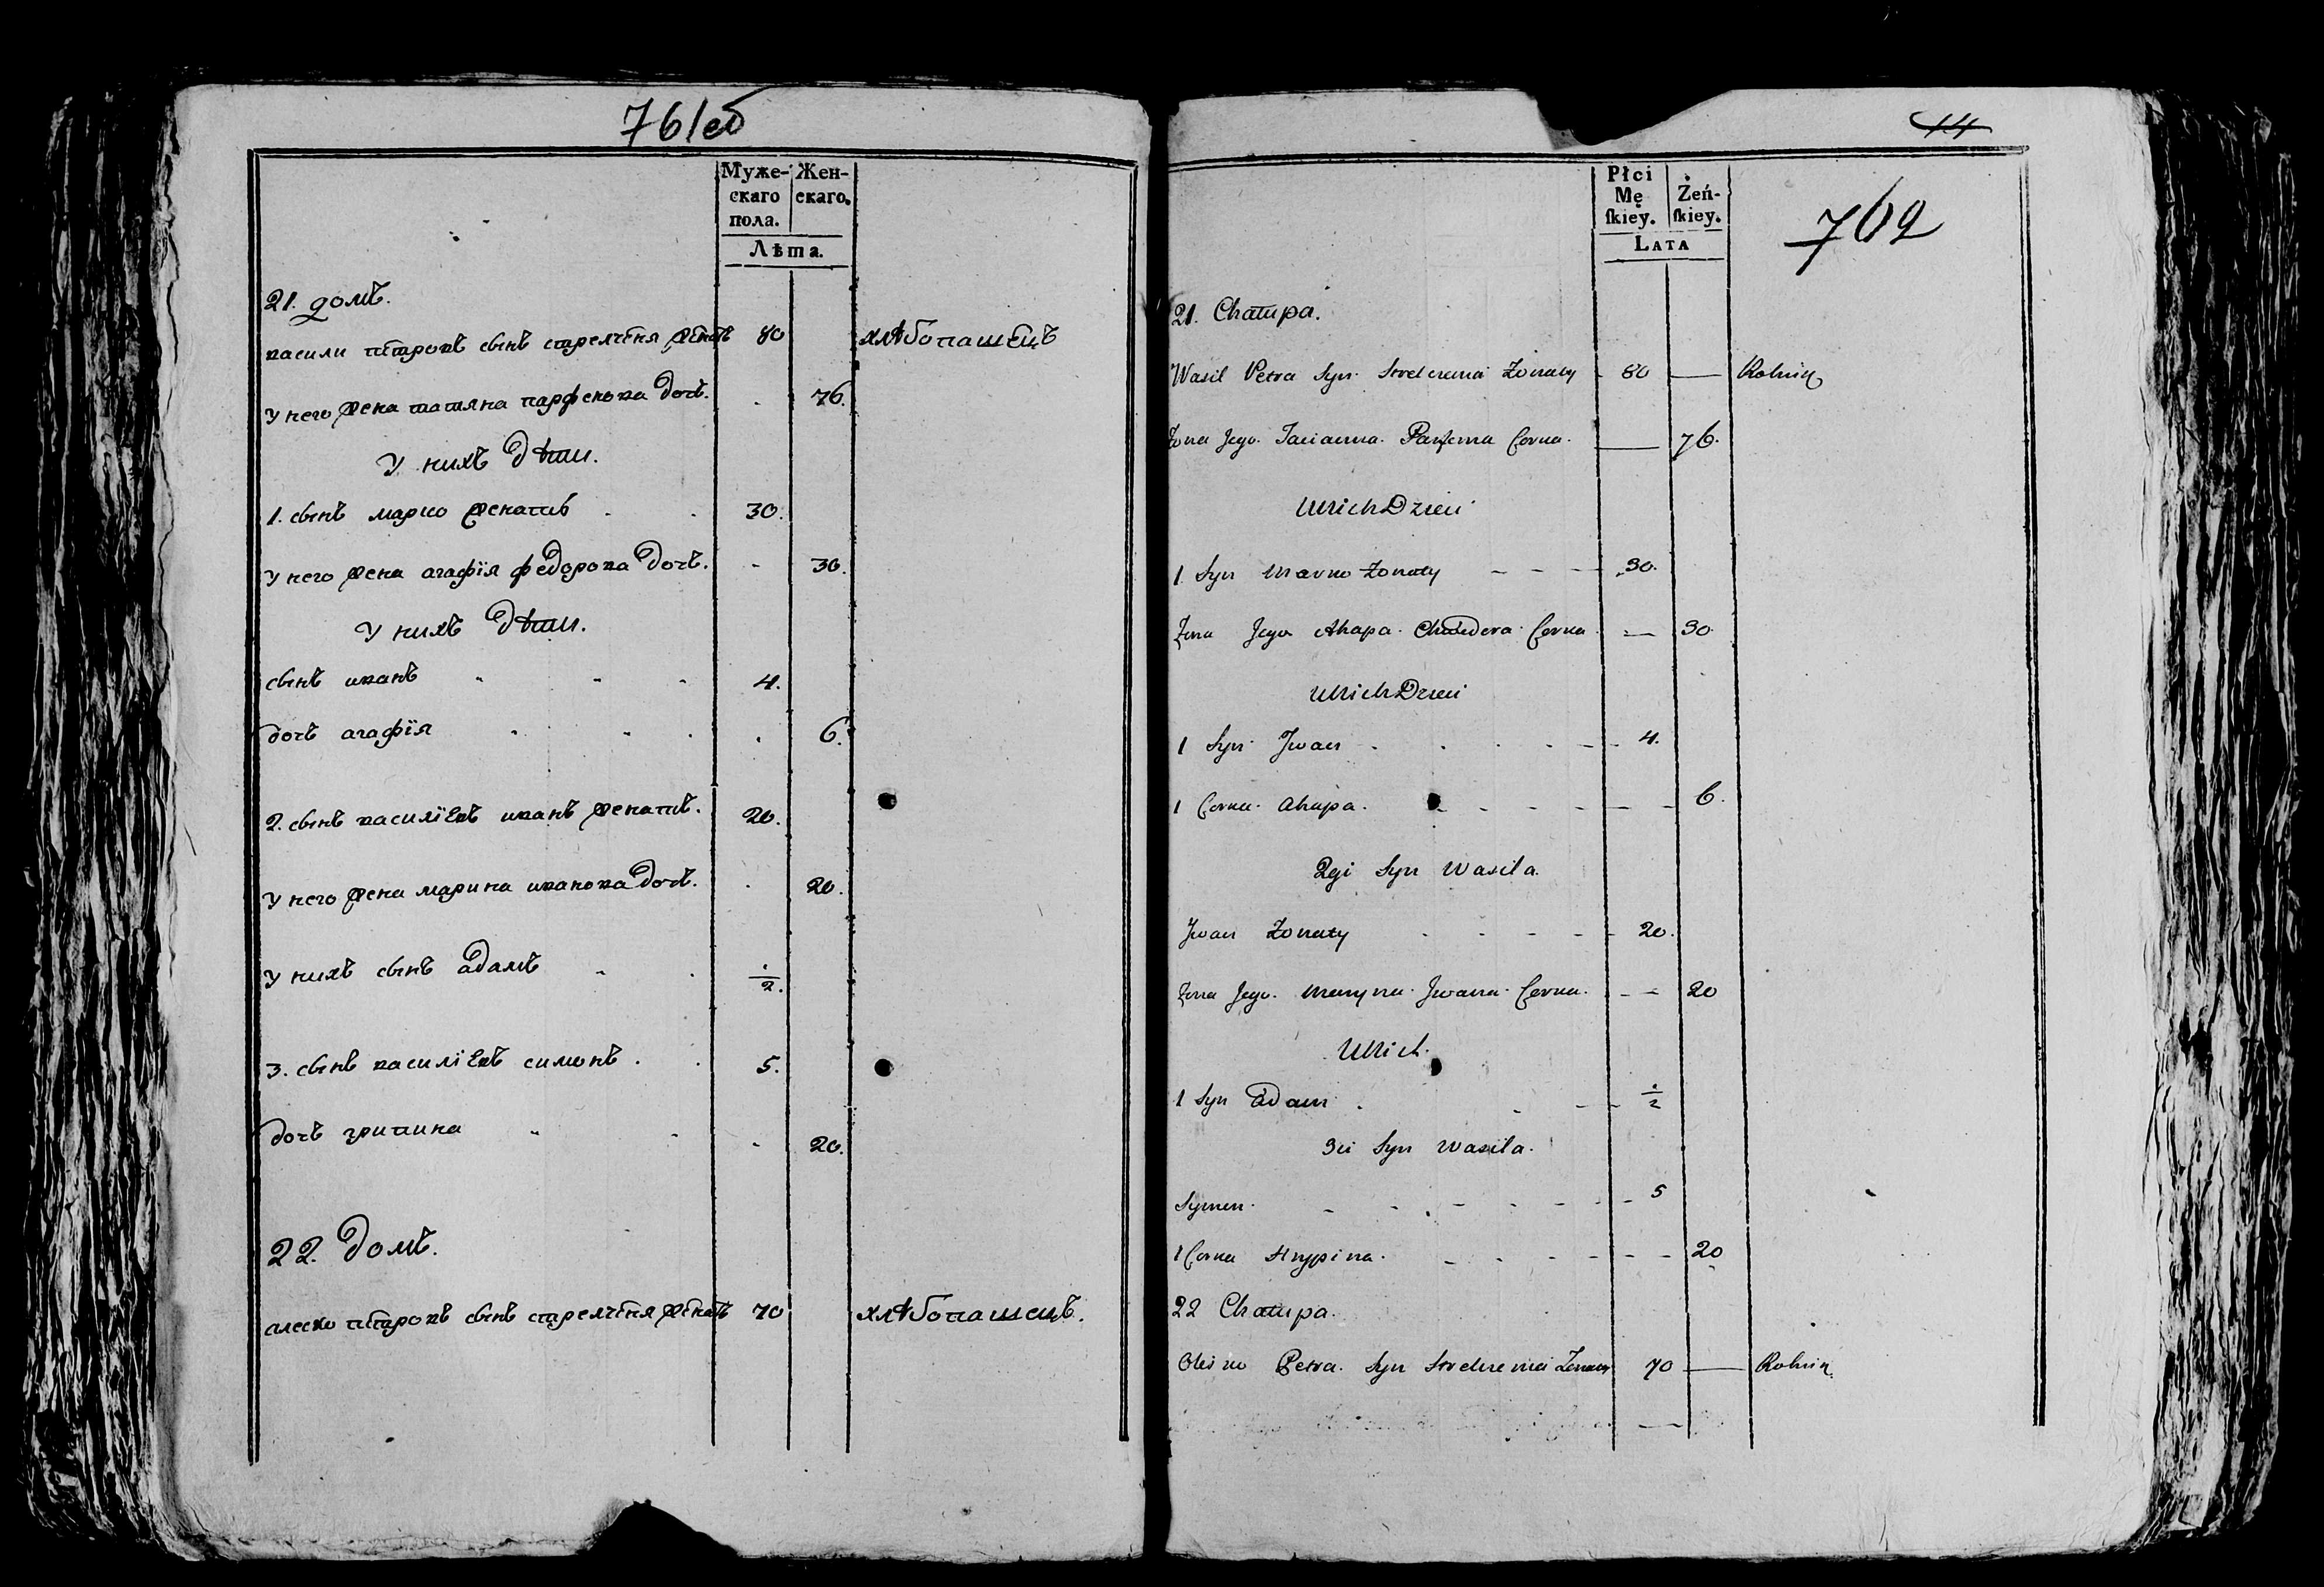 761об
Муже-
скаго
пола.
Жен-
скаго.
Лѣта.
21. домъ.
васили петровъ сынъ стрелченя женатъ 80 хлѣбопашецъ
У него жена татяна парфенова дочь. 76.
У нихъ дѣти.
1. сынъ марко женатъ 30.
У него жена агафїя федорова дочь. 30.
У нихъ дѣти.
сынъ иванъ 4.
дочь агафїя 6.
2. сынъ василїевъ иванъ женатъ. 20.
У него жена марина иванова дочь. 20.
У нихъ сынъ адамъ ½.
3. сынъ василїевъ симонъ. 5.
дочь гритина 20.
22. домъ.
алеско петровъ сынъ стрелченя женатъ 70 хлѣбопашецъ.
14
Płci
Mę
ſkiey.
Żeń-
ſkiey.
LATA
762
21. Chatupa.
Wasil Petra Syn Strelczenia Żonaty 80 — Rolnik
Żona Jego Tacianna Parfema Corka. — 76.
U Nich Dzieci
1 Syn Marko Żonaty 30.
Żona Jego Ahapa Chwedora Corka — 30
U Nich Dzieci
1 Syn Jwan 4.
1 Corka Ahapa. 6.
2gi Syn Wasila.
Jwan Żonaty 20.
Żona Jego Maryna Jwana Corka. 20
U Nich.
1 Syn Adam ½
3ci Syn Wasila.
Symen 5
1 Corka Hrypina. 20
22 Chatupa.
Olesko Petra Syn Strelczenia Żonaty 70 — Rolnik